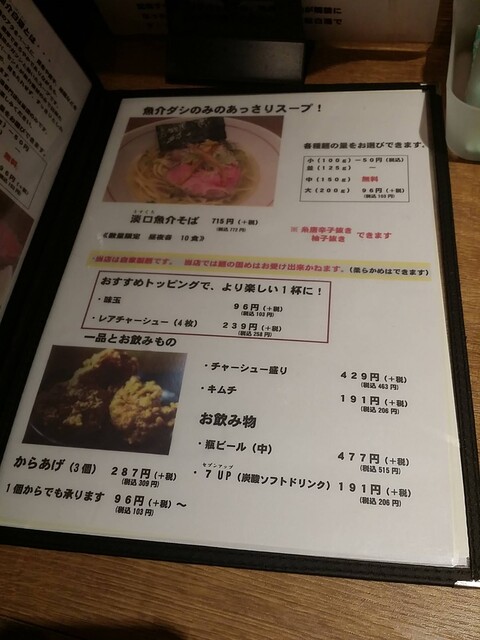 魚介ダシのみのあっさりスープ！
各種麺の量をお選びできます。
小（100g）－50円（税込）
並（125g） ―
中（150g） 無料
大（200g） 96円（+税）
（税込 103円）
淡口魚介そば 715円（+税）
（税込 772円）
《数量限定 昼夜各 10食》
※ 糸唐辛子抜き
柚子抜き できます
・当店は自家製麺です。 当店では麺の固めはお受け出来かねます。（柔らかめはできます）
おすすめトッピングで、より楽しい１杯に！
・味玉 96円（+税）
（税込 103円）
・レアチャーシュー（4枚） 239円（+税）
（税込 258円）
一品とお飲みもの
・チャーシュー盛り 429円（+税）
（税込 463円）
・キムチ 191円（+税）
（税込 206円）
お飲み物
・瓶ビール（中） 477円（+税）
（税込 515円）
セブンアップ
・７UP（炭酸ソフトドリンク） 191円（+税）
（税込 206円）
からあげ（3個） 287円（+税）
（税込 309円）
1個からでも承ります 96円（+税）～
（税込 103円）
無料